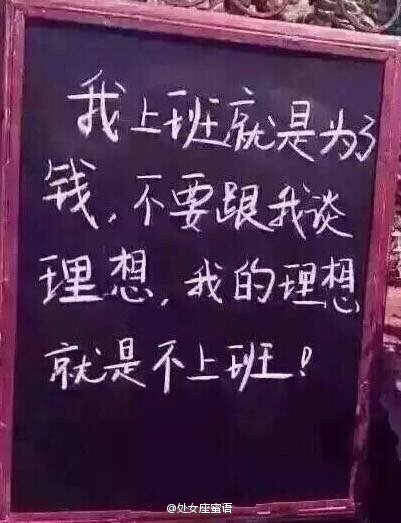 我上班就是为了
钱，不要跟我谈
理想，我的理想
就是不上班！
@处女座蜜语